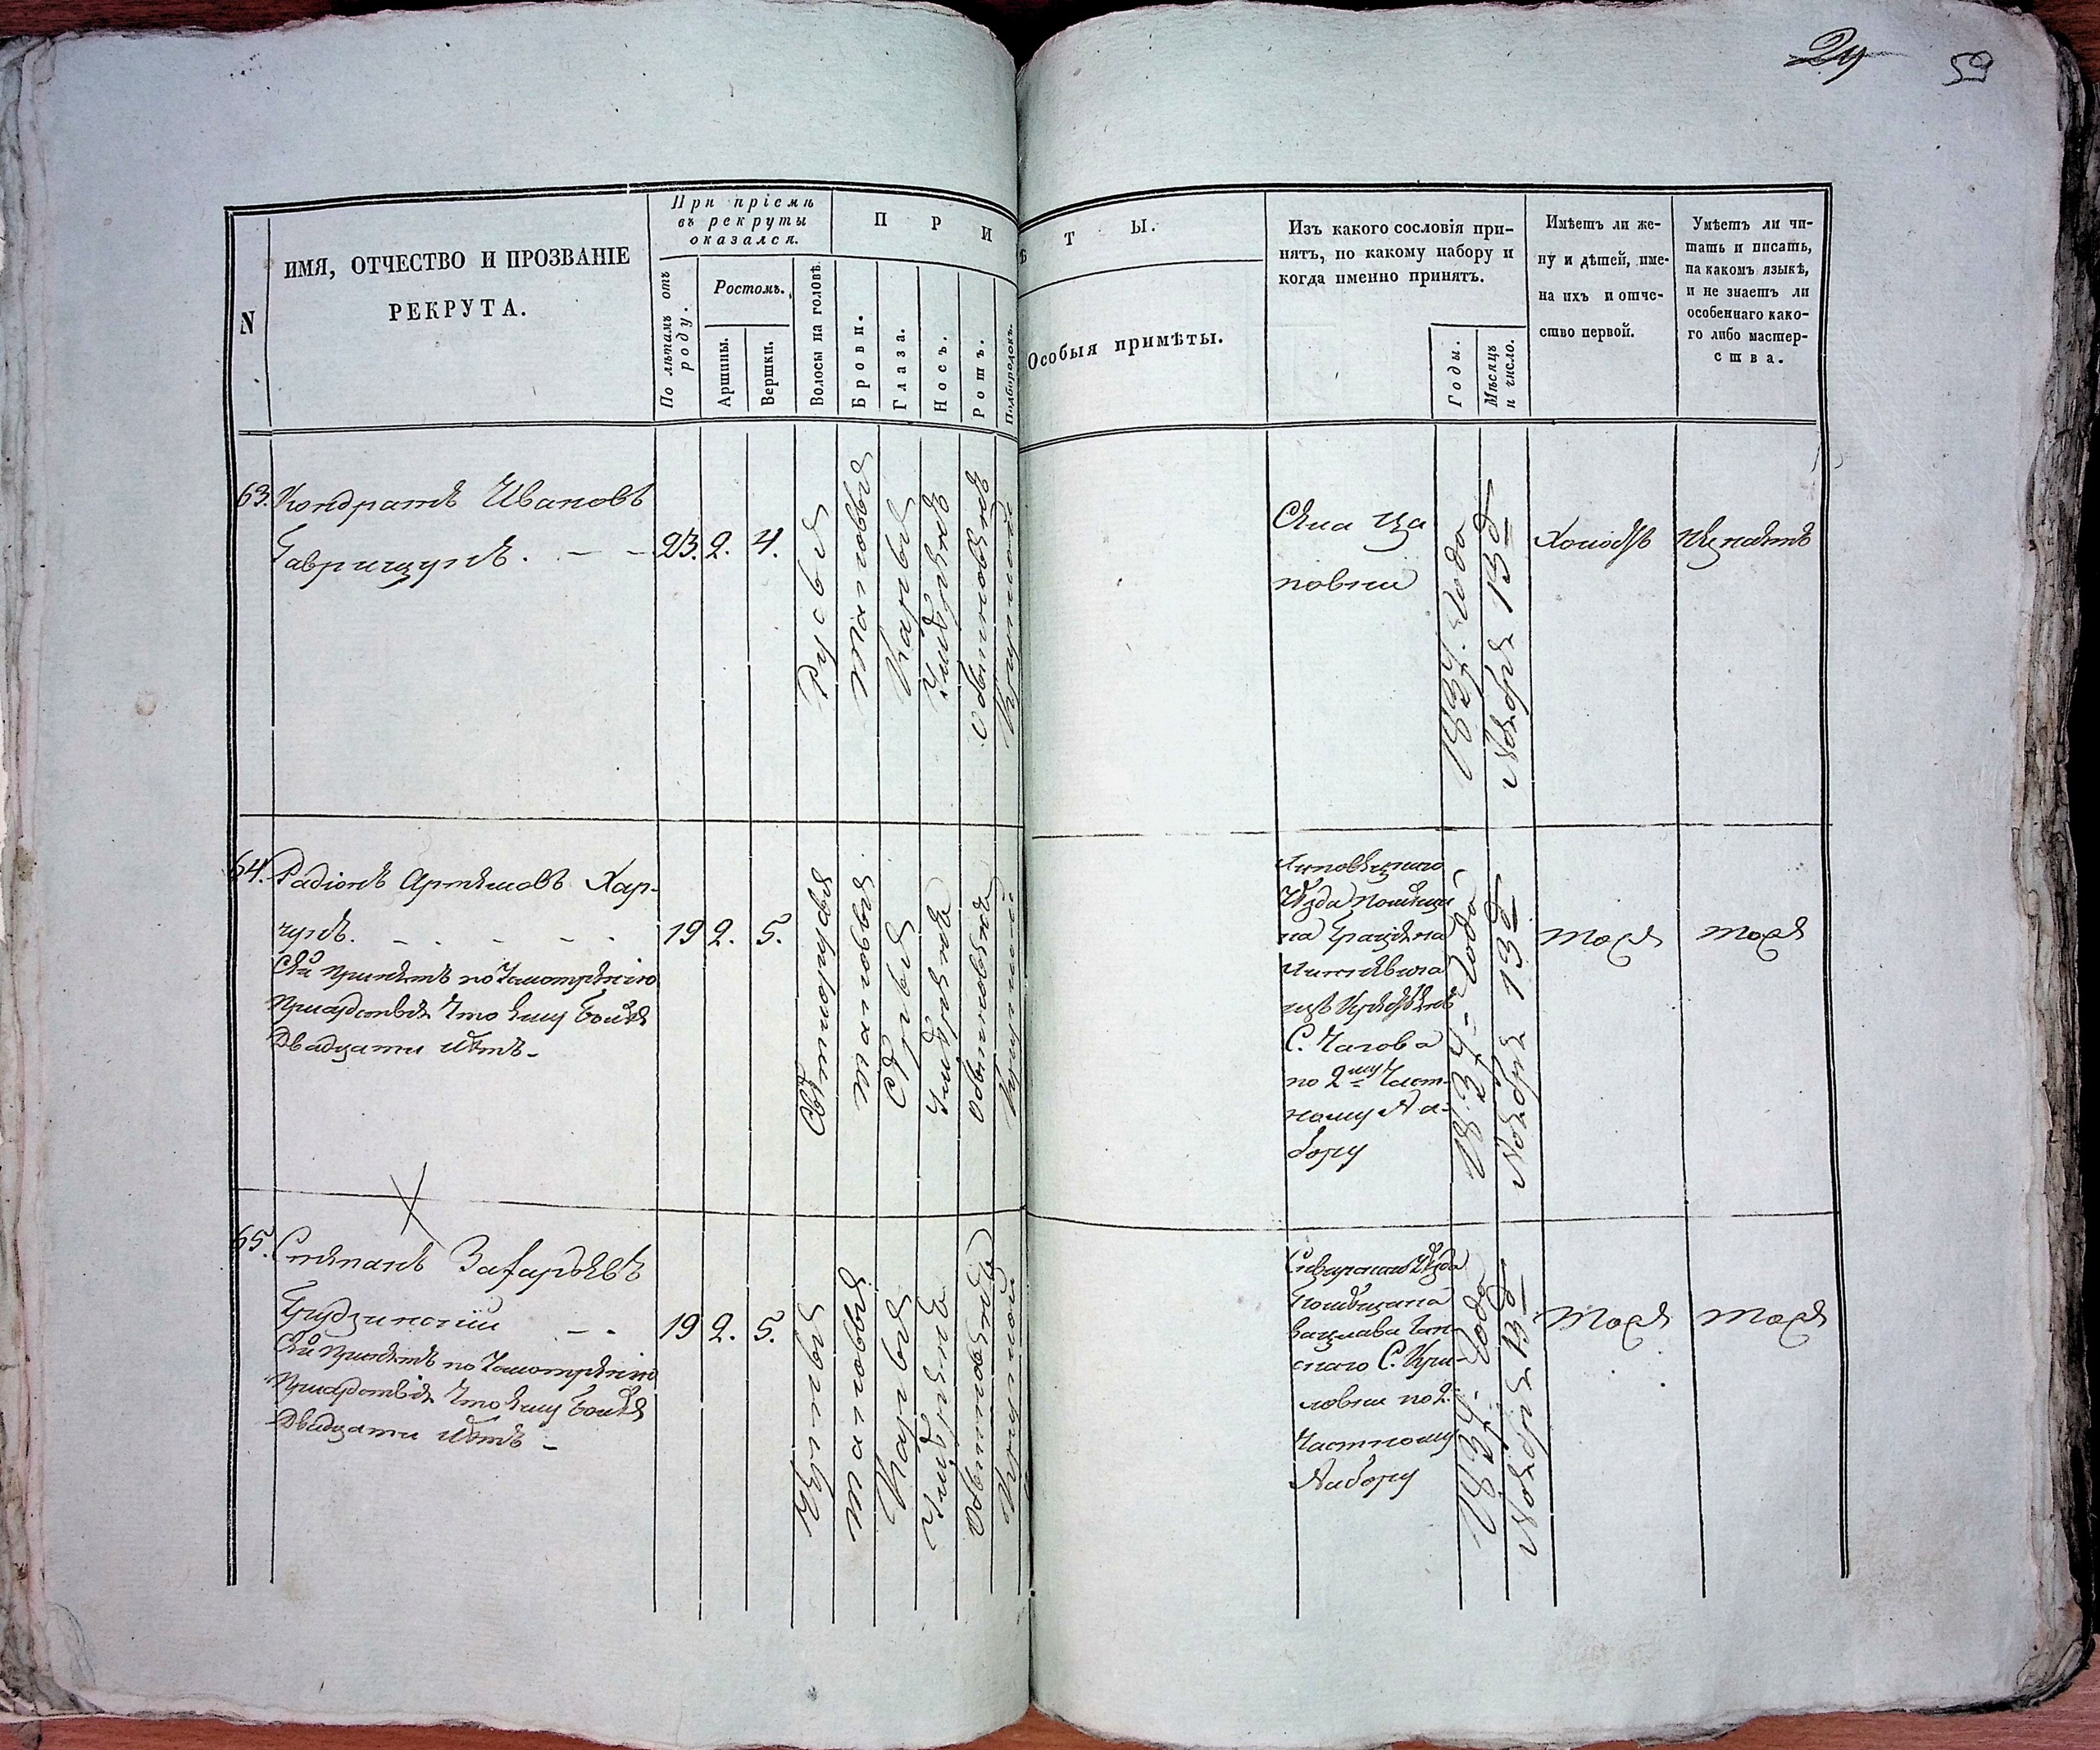 24 59
N
ИМЯ, ОТЧЕСТВО И ПРОЗВАНІЕ
РЕКРУТА.
При пріемѣ
въ рекруты
оказался.
По лѣтамъ отъ
роду.
Ростомъ.
Аршины.
Вершки.
П Р И
Волосы на головѣ.
Брови.
Глаза.
Носъ.
Ротъ.
Подбородокъ.
Ѣ Т Ы.
Особыя примѣты.
Изъ какого сословія при-
нятъ, по какому набору и
когда именно принятъ.
Годы.
Мѣсяцъ
и число.
Имѣетъ ли же-
ну и дѣтей, име-
на ихъ и отче-
ство первой.
Умѣетъ ли чи-
тать и писать,
на какомъ языкѣ,
и не знаетъ ли
особеннаго како-
го либо мастер-
ства.
63. Кондратъ Ивановъ
Гаврищукъ.
23. 2. 4.
Русыя
таковыя
Карыя
Умѣренъ
обыкновенъ
Круглой
новки
1834. Года
Ноября 13 д
Холостъ
Незнаетъ
64. Радіонъ Артемовъ Хар-
чукъ.
Сей принятъ по Усмотренію
Присутствія что ему более
Двадцати летъ
19 2. 5.
Светлорусыя
таковыя
Серыя
Умѣрена
обыкновена
Круглой
Липовецкаго
Уезда помещи
С. Чагова
по 2му Част-
ному На-
бору
1834 Года
Ноября 13 д
тоже
тоже
65. Степанъ Захарьевъ
Грудзинскій
Сей принятъ по Усмотренію
Присутствія что ему более
Двадцати летъ
19 2. 5.
таковыя
Карыя
Умѣрена
Обыкновена
Круглой
Сквирскаго Уезда
Помещика
Вацлава
скаго С. Кри-
ловки по 2.
Частному
Набору
1834. Года
Ноября 13 д
Тоже
тоже